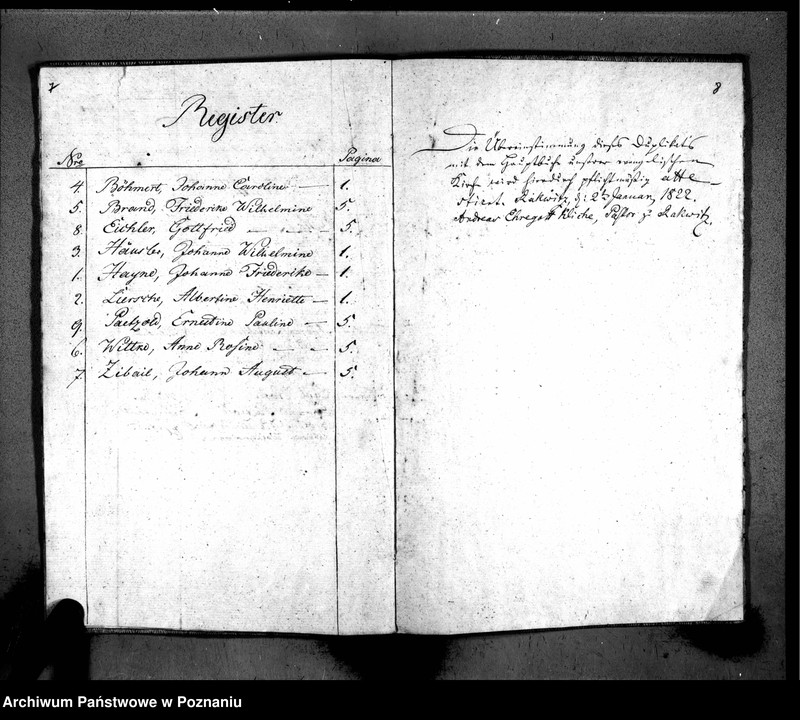 7
Register.
Nro Pagina
4. Böhmert, Johanne Caroline — 1.
5. Brand, Friederike Wilhelmine 5.
8. Eichler, Gottfried — — 5.
3. Häusler, Johanne Wilhelmine 1.
1. Hayne, Johanne Friederike — 1.
2. Liersche, Albertine Henriette — 1.
9. Paetzold, Ernestine Pauline — 5.
6. Wittke, Anne Rosine — — 5.
7. Zibail, Johann August — 5.
8
Die Übereinstimmung dieses Duplikats
mit dem Hauptbuche unserer evangelischen
Kirche wird hierdurch pflichtmäßig atte-
stirt. Rakwitz, d: 2t Januar, 1822.
Andreas Ehregott Küche, Pastor zu Rakwitz.
Archiwum Państwowe w Poznaniu